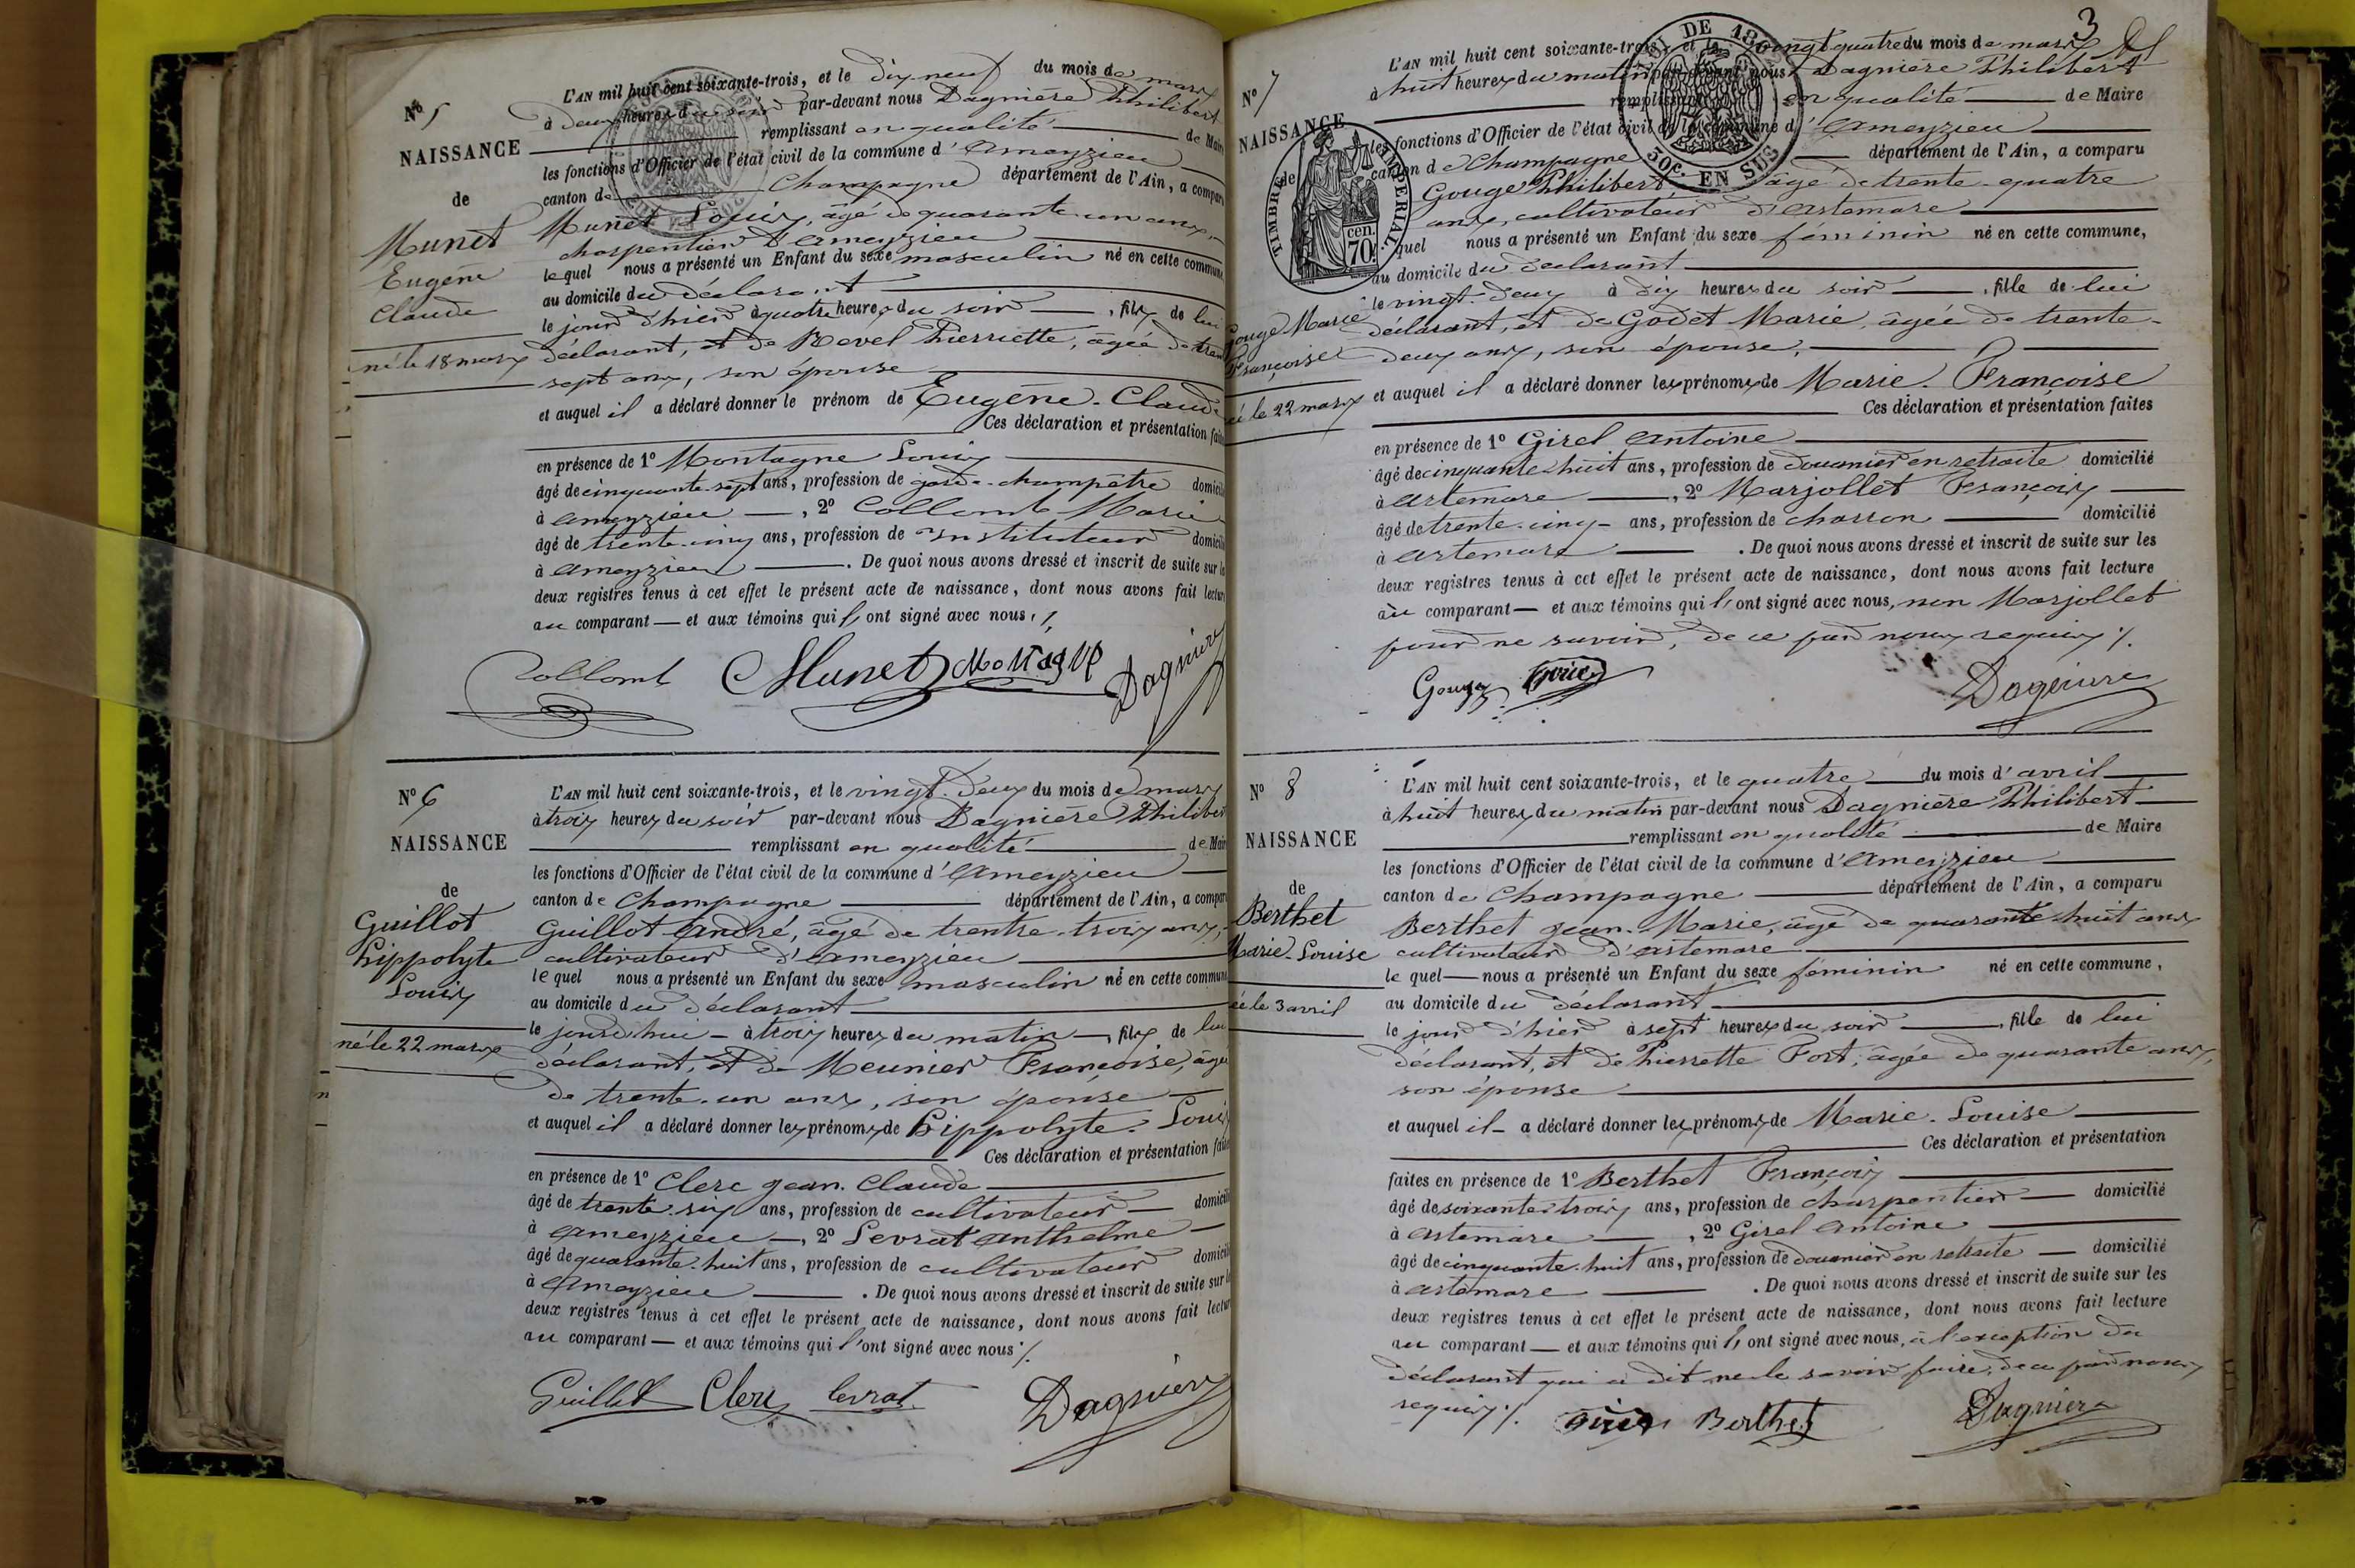 N° 5
NAISSANCE
de
Munet
Eugène
Claude
né le 18 mars
L'AN mil huit cent soixante-trois, et le dix-neuf du mois de mars
à deux heures du soir par-devant nous Dagnière Philibert
remplissant en qualité de Maire
les fonctions d'Officier de l'état civil de la commune d'Ameyzieu
canton de Champagne département de l'Ain, a comparu
Munet Louis, âgé de quarante-un ans,
charpentier d'Ameyzieu
lequel nous a présenté un Enfant du sexe masculin né en cette commune
au domicile du déclarant
le jour d'hier à quatre heures du soir, fils de lui
déclarant, et de Revel Pierrette, âgée de trente
sept ans, son épouse
et auquel il a déclaré donner le prénom de Eugène-Claude
Ces déclaration et présentation faites
en présence de 1° Montagne Louis
âgé de cinquante-sept ans, profession de garde-champêtre domicilié
à Ameyzieu, 2° Collomb Marie
âgé de trente-cinq ans, profession de Instituteur domicilié
à Ameyzieu. De quoi nous avons dressé et inscrit de suite sur les
deux registres tenus à cet effet le présent acte de naissance, dont nous avons fait lecture
au comparant et aux témoins qui l'ont signé avec nous ./.
Collomb Munet Montagne Dagnière
N° 6
NAISSANCE
de
Guillot
hippolyte
Louis
né le 22 mars
L'AN mil huit cent soixante-trois, et le vingt-deux du mois de mars
à trois heures du soir par-devant nous Dagnière Philibert
remplissant en qualité de Maire
les fonctions d'Officier de l'état civil de la commune d'Ameyzieu
canton de Champagne département de l'Ain, a comparu
Guillot André, âgé de trentre-trois ans,
cultivateur d'Ameyzieu
lequel nous a présenté un Enfant du sexe masculin né en cette commune
au domicile du déclarant
le jourd'hui à trois heures du matin, fils de lui
déclarant, et de Meunier Françoise, âgée
de trente-un ans, son épouse
et auquel il a déclaré donner les prénoms de hippolyte-Louis
Ces déclaration et présentation faites
en présence de 1° Clerc Jean-Claude
âgé de trente-six ans, profession de cultivateur domicilié
à Ameyzieu, 2° Levrat Anthelme
âgé de quarante-huit ans, profession de cultivateur domicilié
à Ameyzieu. De quoi nous avons dressé et inscrit de suite sur les
deux registres tenus à cet effet le présent acte de naissance, dont nous avons fait lecture
au comparant et aux témoins qui l'ont signé avec nous ./.
Guillot Clerc Levrat Dagnière
3
N° 7
NAISSANCE
de
Gouge Marie
Françoise
née le 22 mars
TIMBRE IMPERIAL
70 cen.
LOI DE 1862
30c. EN SUS
L'AN mil huit cent soixante-trois, et le vingt quatre du mois de mars
à huit heures du matin par-devant nous Dagnière Philibert
remplissant en qualité de Maire
les fonctions d'Officier de l'état civil de la commune d'Ameyzieu
canton de Champagne département de l'Ain, a comparu
Gouge Philibert âgé de trente-quatre
ans, cultivateur d'Artemare
quel nous a présenté un Enfant du sexe féminin né en cette commune,
au domicile du déclarant
le vingt-deux à dix heures du soir, fille de lui
déclarant, et de Godet Marie, âgée de trente-
deux ans, son épouse,
et auquel il a déclaré donner les prénoms de Marie-Françoise
Ces déclaration et présentation faites
en présence de 1° Girel Antoine
âgé de cinquante-huit ans, profession de douanier en retraite domicilié
à Artemare, 2° Marjollet François
âgé de trente-cinq ans, profession de charron domicilié
à Artemare. De quoi nous avons dressé et inscrit de suite sur les
deux registres tenus à cet effet le présent acte de naissance, dont nous avons fait lecture
au comparant et aux témoins qui l'ont signé avec nous, non Marjollet
pour ne savoir, de ce par nous requis ./.
Gouge Girel Dagnière
N° 8
NAISSANCE
de
Berthet
Marie-Louise
née le 3 avril
L'AN mil huit cent soixante-trois, et le quatre du mois d'avril
à huit heures du matin par-devant nous Dagnière Philibert
remplissant en qualité de Maire
les fonctions d'Officier de l'état civil de la commune d'Ameyzieu
canton de Champagne département de l'Ain, a comparu
Berthet Jean-Marie, âgé de quarante-huit ans
cultivateur d'Artemare
le quel nous a présenté un Enfant du sexe féminin né en cette commune,
au domicile du déclarant
le jour d'hier à sept heures du soir, fille de lui
déclarant, et de Pierrette Fort, âgée de quarante ans,
son épouse
et auquel il a déclaré donner les prénoms de Marie-Louise
Ces déclaration et présentation
faites en présence de 1° Berthet François
âgé de soixante-trois ans, profession de charpentier domicilié
à Artemare, 2° Girel Antoine
âgé de cinquante-huit ans, profession de douanier en retraite domicilié
à Artemare. De quoi nous avons dressé et inscrit de suite sur les
deux registres tenus à cet effet le présent acte de naissance, dont nous avons fait lecture
au comparant et aux témoins qui l'ont signé avec nous, à l'exception du
déclarant qui a dit ne le savoir faire, de ce par nous
requis ./. Girel Berthet Dagnière